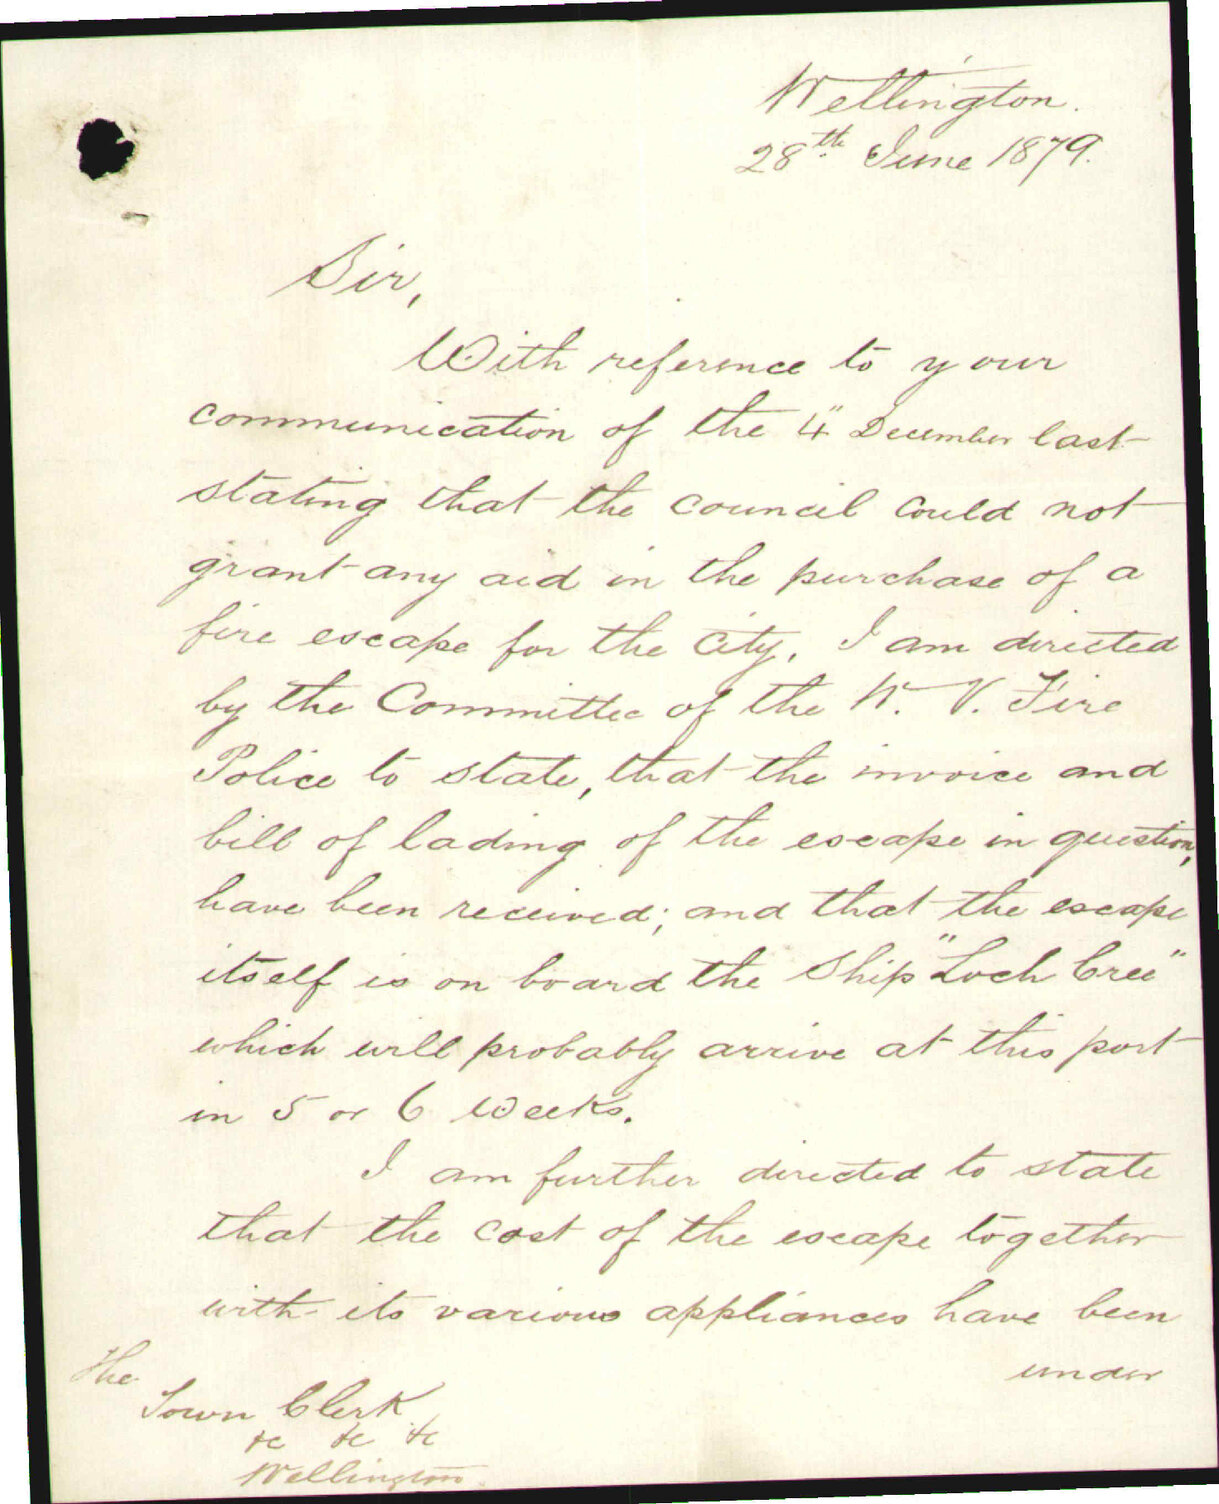 Wellington.
28th June 1879.
Sir,
With reference to your
communication of the 4" December last
stating that the council could not
grant any aid in the purchase of a
fire escape for the city, I am directed
by the Committee of the W. V. Fire
Police to state, that the invoice and
bill of lading of the escape in question,
have been received; and that the escape
itself is on board the Ship "Loch Cree"
which will probably arrive at this port
in 5 or 6 weeks.
I am further directed to state
that the cost of the escape together
with its various appliances have been
under
The
Town Clerk
&c &c &c
Wellington